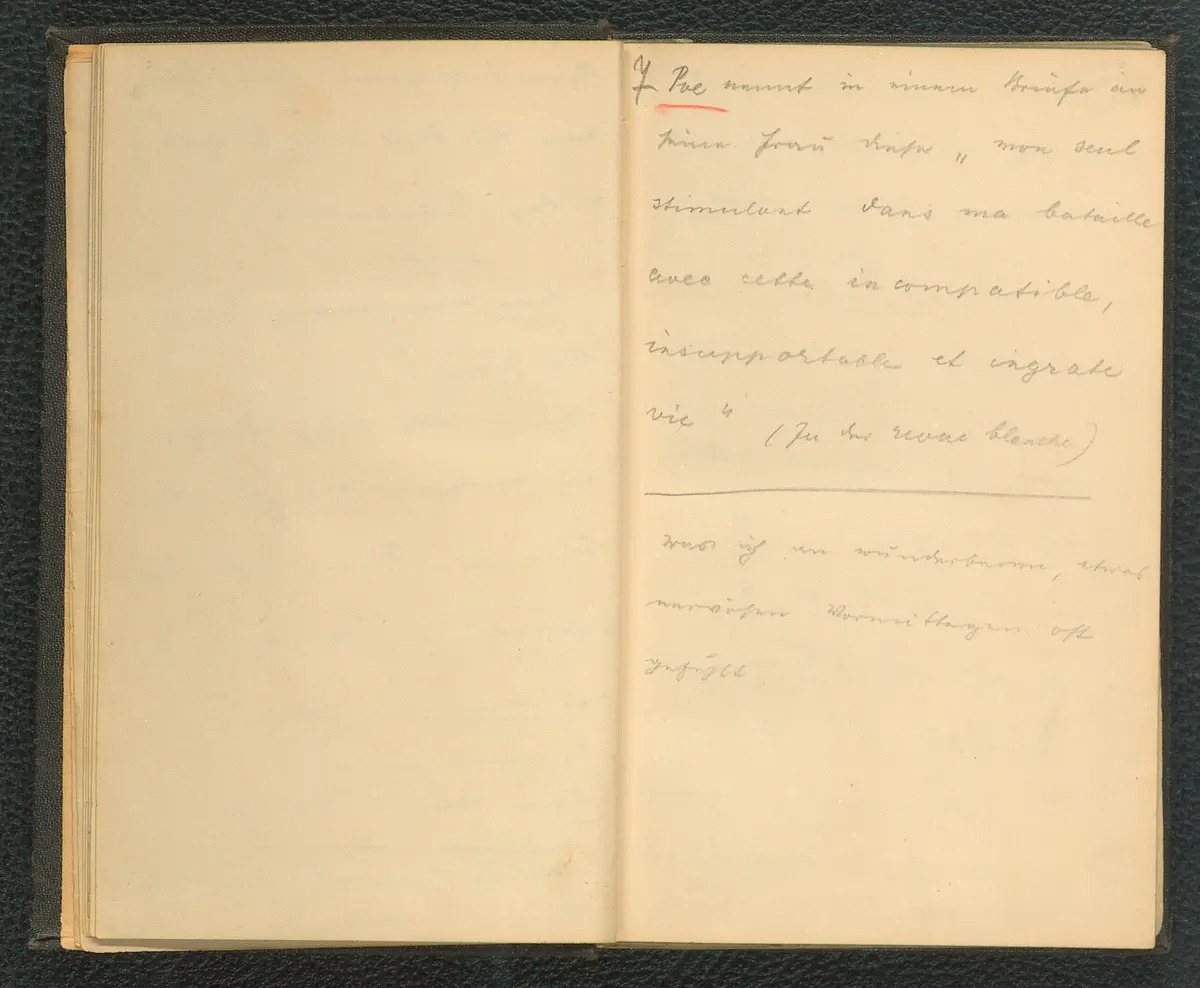 Poe nennt in einem Briefe an
seine Frau diese „ mon seul
stimulant dans ma bataille
avec cette incompatible,
insupportable et ingrate
vie “ (In der revue blanche)
was ich an wunderbaren, etwas
nervösen Vormittagen oft
gefühlt